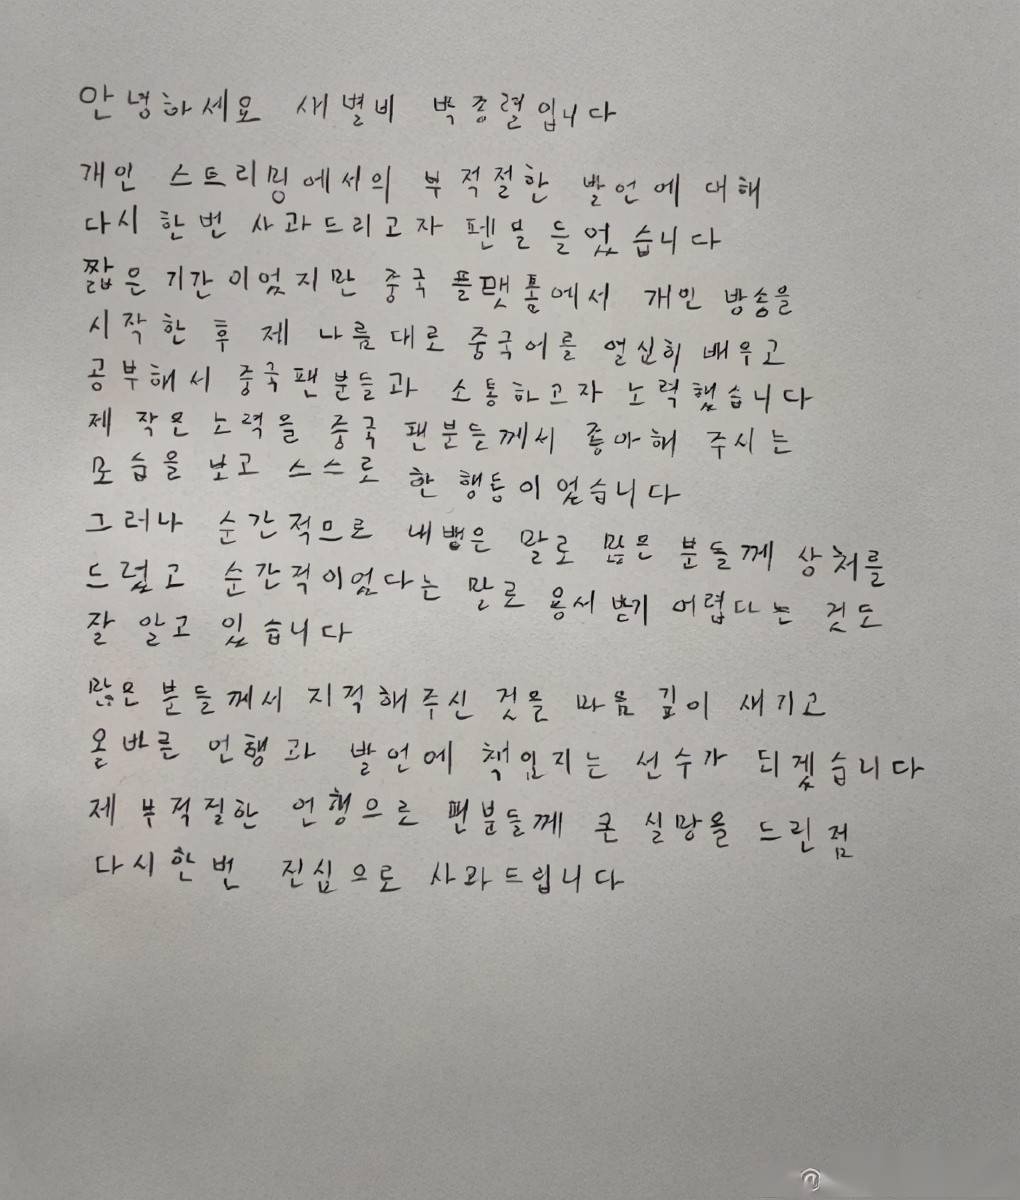 안녕하세요 새별비 박종렬입니다
개인 스트리밍에서의 부적절한 발언에 대해
다시 한번 사과드리고자 펜을 들었습니다
짧은 기간이었지만 중국 플랫폼에서 개인 방송을
시작한 후 제 나름대로 중국어를 열심히 배우고
공부해서 중국팬분들과 소통하고자 노력했습니다
제 작은 노력을 중국 팬분들께서 좋아해 주시는
모습을 보고 스스로 한 행동이었습니다
그러나 순간적므로 내뱉은 말로 많은 분들께 상처를
드렸고 순간적이었다는 말로 용서 받기 어렵다는 것도
잘 알고 있습니다
많은 분들께서 지적해주신 것을 마음 깊이 새기고
올바른 언행과 발언에 책임지는 선수가 되겠습니다
제 부적절한 언행으로 팬분들께 큰 실망을 드린점
다시한번 진심으로 사과드립니다